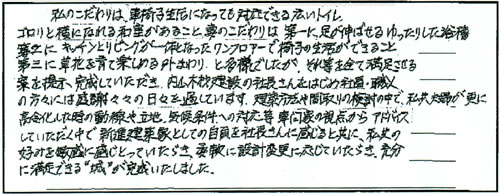 私のこだわりは、車椅子生活になっても対応できる広いトイレ、
ゴロリと横になれる和室があること、妻のこだわりは第一に、足が伸ばせるゆったりした浴槽
第二にキッチンとリビングが一体となったワンフロアーで椅子の生活ができること
第三に草花を育て楽しめる外まわり、と多様でしたが、それ等を全て満足させる
案を提示、完成していただき、内山木材建設の社長さんをはじめ社員・職人
の方々には感謝々々の日々を過しています。建築方法や間取りの検討の中で、私共夫婦が更に
高令化した時の動線や立地、気候条件への対応等専門家の視点からアドバイス
していただく中で新進建築家としての自負を社長さんに感じると共に、私共の
好みを敏感に感じとっていただき、柔軟に設計変更に応じていただき、充分
に満足できる“城”が完成いたしました。